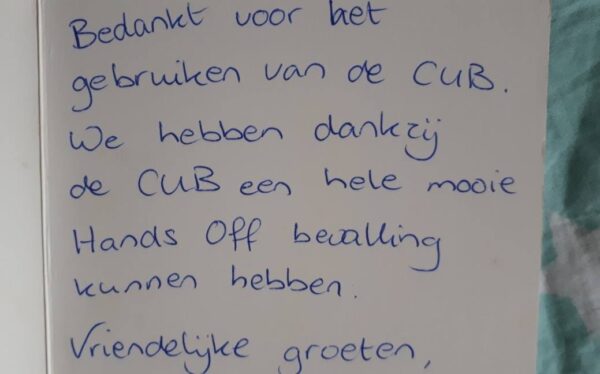 Bedankt voor het
gebruiken van de CUB.
We hebben dankzij
de CUB een hele mooie
Hands Off bevalling
kunnen hebben.
Vriendelijke groeten,